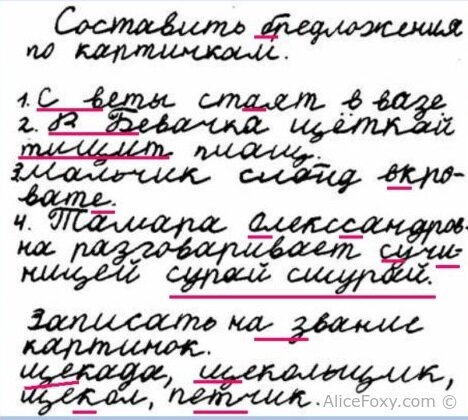 Составить бредложения
по картинкам.
1. С веты стаят в вазе
2. В Бевачка щёткай
тищит плащ.
3. Мальчик слаид вкро-
вате.
4. Тамара Олекссандров-
на разговаривает сучи-
ницей сурай шурай.
Записать на звание
картинок.
щекада, щекольщик,
щекол, петчик.
AliceFoxy.com ©